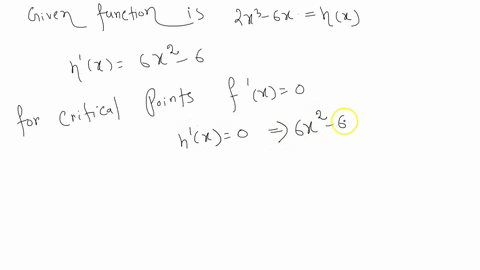 Given function is 2x³-6x = h(x)
h'(x) = 6x²-6
for critical points f'(x)=0
h'(x)=0 ⇒ 6x²-6